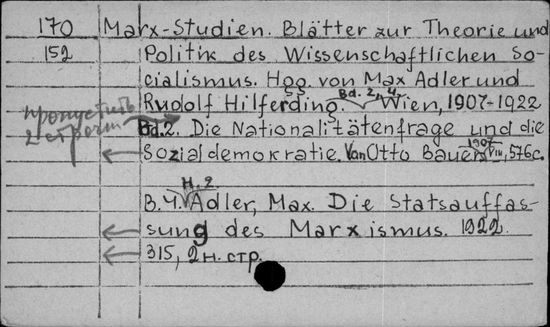 170 Marx-Studien. Blätter zur Theorie und
152 Politik des Wissenschaftlichen So-
cialismus. Hgg. von Max Adler und
Rudolf Hilferding. Bd. 2, 4. Wien, 1907-1922
пропустить
2 строки
Bd.2. Die Nationalitätenfrage und die
Sozialdemokratie. Von Otto Bauer. 1907. VIII, 576c.
B.4. H.2 Adler, Max. Die Statsauffas-
sung des Marxismus. 1922.
315, 2 н. стр.